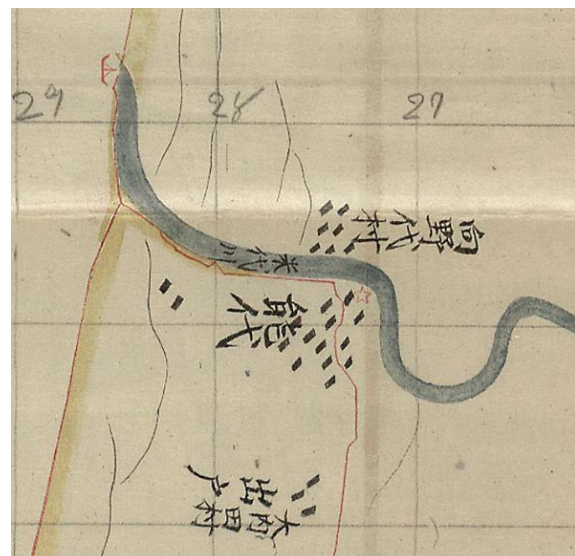 29
28
27
向野代村
米代川
能代
大内田村
出戸